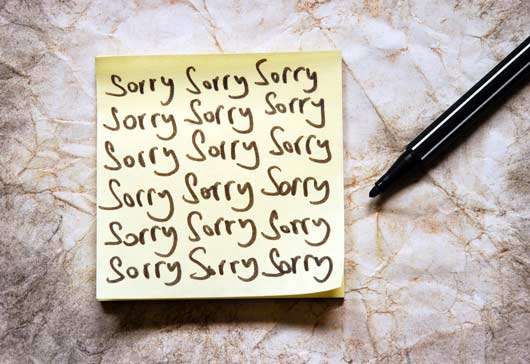 Sorry Sorry Sorry
Sorry Sorry Sorry
Sorry Sorry Sorry
Sorry Sorry Sorry
Sorry Sorry Sorry
Sorry Sorry Sorry